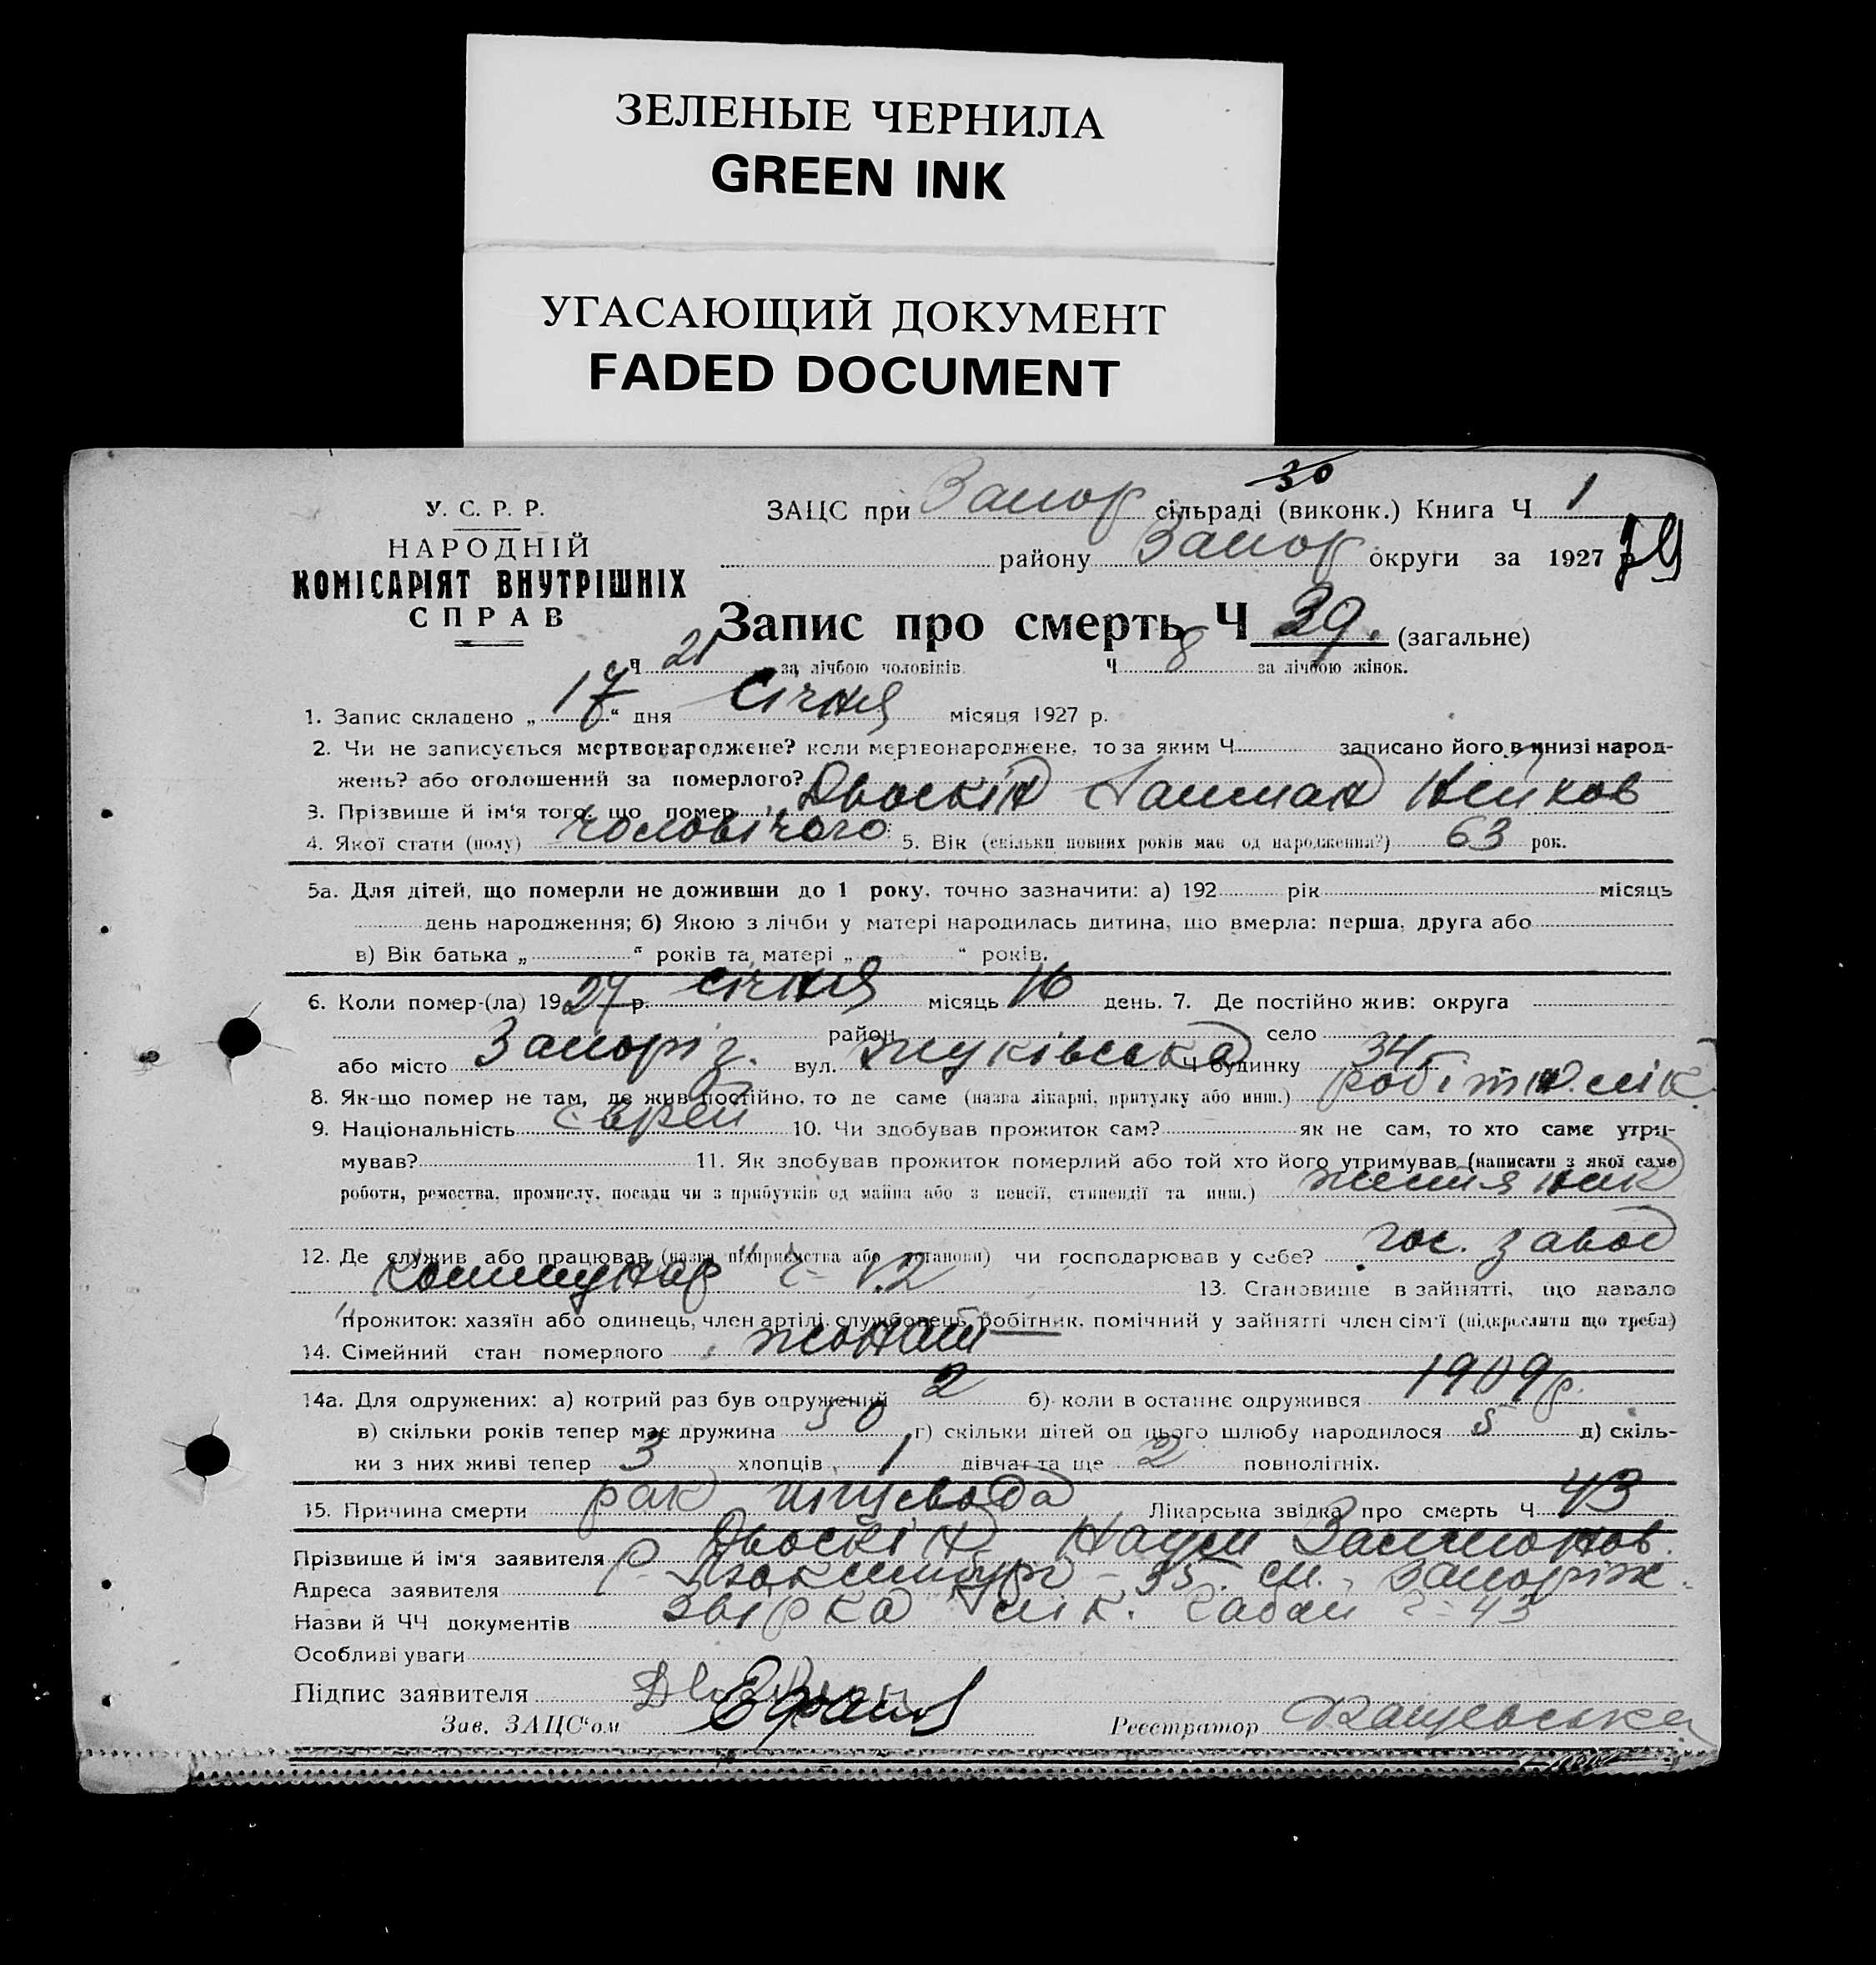 ЗЕЛЕНЫЕ ЧЕРНИЛА
GREEN INK
УГАСАЮЩИЙ ДОКУМЕНТ
FADED DOCUMENT
30
У. С. Р. Р.
НАРОДНІЙ
КОМІСАРІЯТ ВНУТРІШНІХ
СПРАВ
ЗАЦС при Запор сільраді (виконк.) Книга Ч 1
району Запор округи за 1927 р
Запис про смерть Ч 39. (загальне)
Ч 21 за лічбою чоловіків. Ч 8 за лічбою жінок.
1. Запис складено „ 17 “ дня Січня місяця 1927 р.
2. Чи не записується мертвонароджене? коли мертвонароджене, то за яким Ч записано його в книзі народ-
жень? або оголошений за померлого?
3. Прізвище й ім‘я того, що помер Двоскін
4. Якої стати (полу) чоловічого 5. Вік (скільки повних років має од народження?) 63 рок.
5а. Для дітей, що померли не доживши до 1 року, точно зазначити: а) 192 рік місяць
день народження; б) Якою з лічби у матері народилась дитина, що вмерла: перша, друга або
в) Вік батька „ “ років та матері „ “ років.
6. Коли помер-(ла) 1927 р. січня місяць 16 день. 7. Де постійно жив: округа
район село
або місто Запоріз. вул. Жуківська Ч будинку 34
8. Як-що помер не там, де жив постійно, то де саме (назва лікарні, притулку або инш.) робітн. лік.
9. Національність єврей 10. Чи здобував прожиток сам? як не сам, то хто саме утри-
мував? 11. Як здобував прожиток померлий або той хто його утримував (написати з якої саме
роботи, ремества, промислу, посади чи з прибутків од майна або з пенсії, стипендії та инш.) жестяник
12. Де служив або працював (назва підприємства або установи) чи господарював у себе? гос. завод
"Коммунар" 13. Становище в зайнятті, що давало
прожиток: хазяїн або одинець, член артілі, службовець, робітник, помічний у зайнятті член сім‘ї (підкреслити що треба)
14. Сімейний стан померлого жонат
14а. Для одружених: а) котрий раз був одружений 2 б) коли в останнє одружився 1909 р.
в) скільки років тепер має дружина 50 г) скільки дітей од цього шлюбу народилося 5 д) скіль-
ки з них живі тепер 3 хлопців 1 дівчат та ще 2 повнолітніх.
15. Причина смерти рак піщевода Лікарська звідка про смерть Ч 43
Прізвище й ім‘я заявителя Двоскін Наум Залмонов.
Адреса заявителя 35. ст. Запоріж.
Назви й ЧЧ документів Звірка лік. Ч 43
Особливі уваги
Підпис заявителя
Зав. ЗАЦС‘ом
Реєстратор